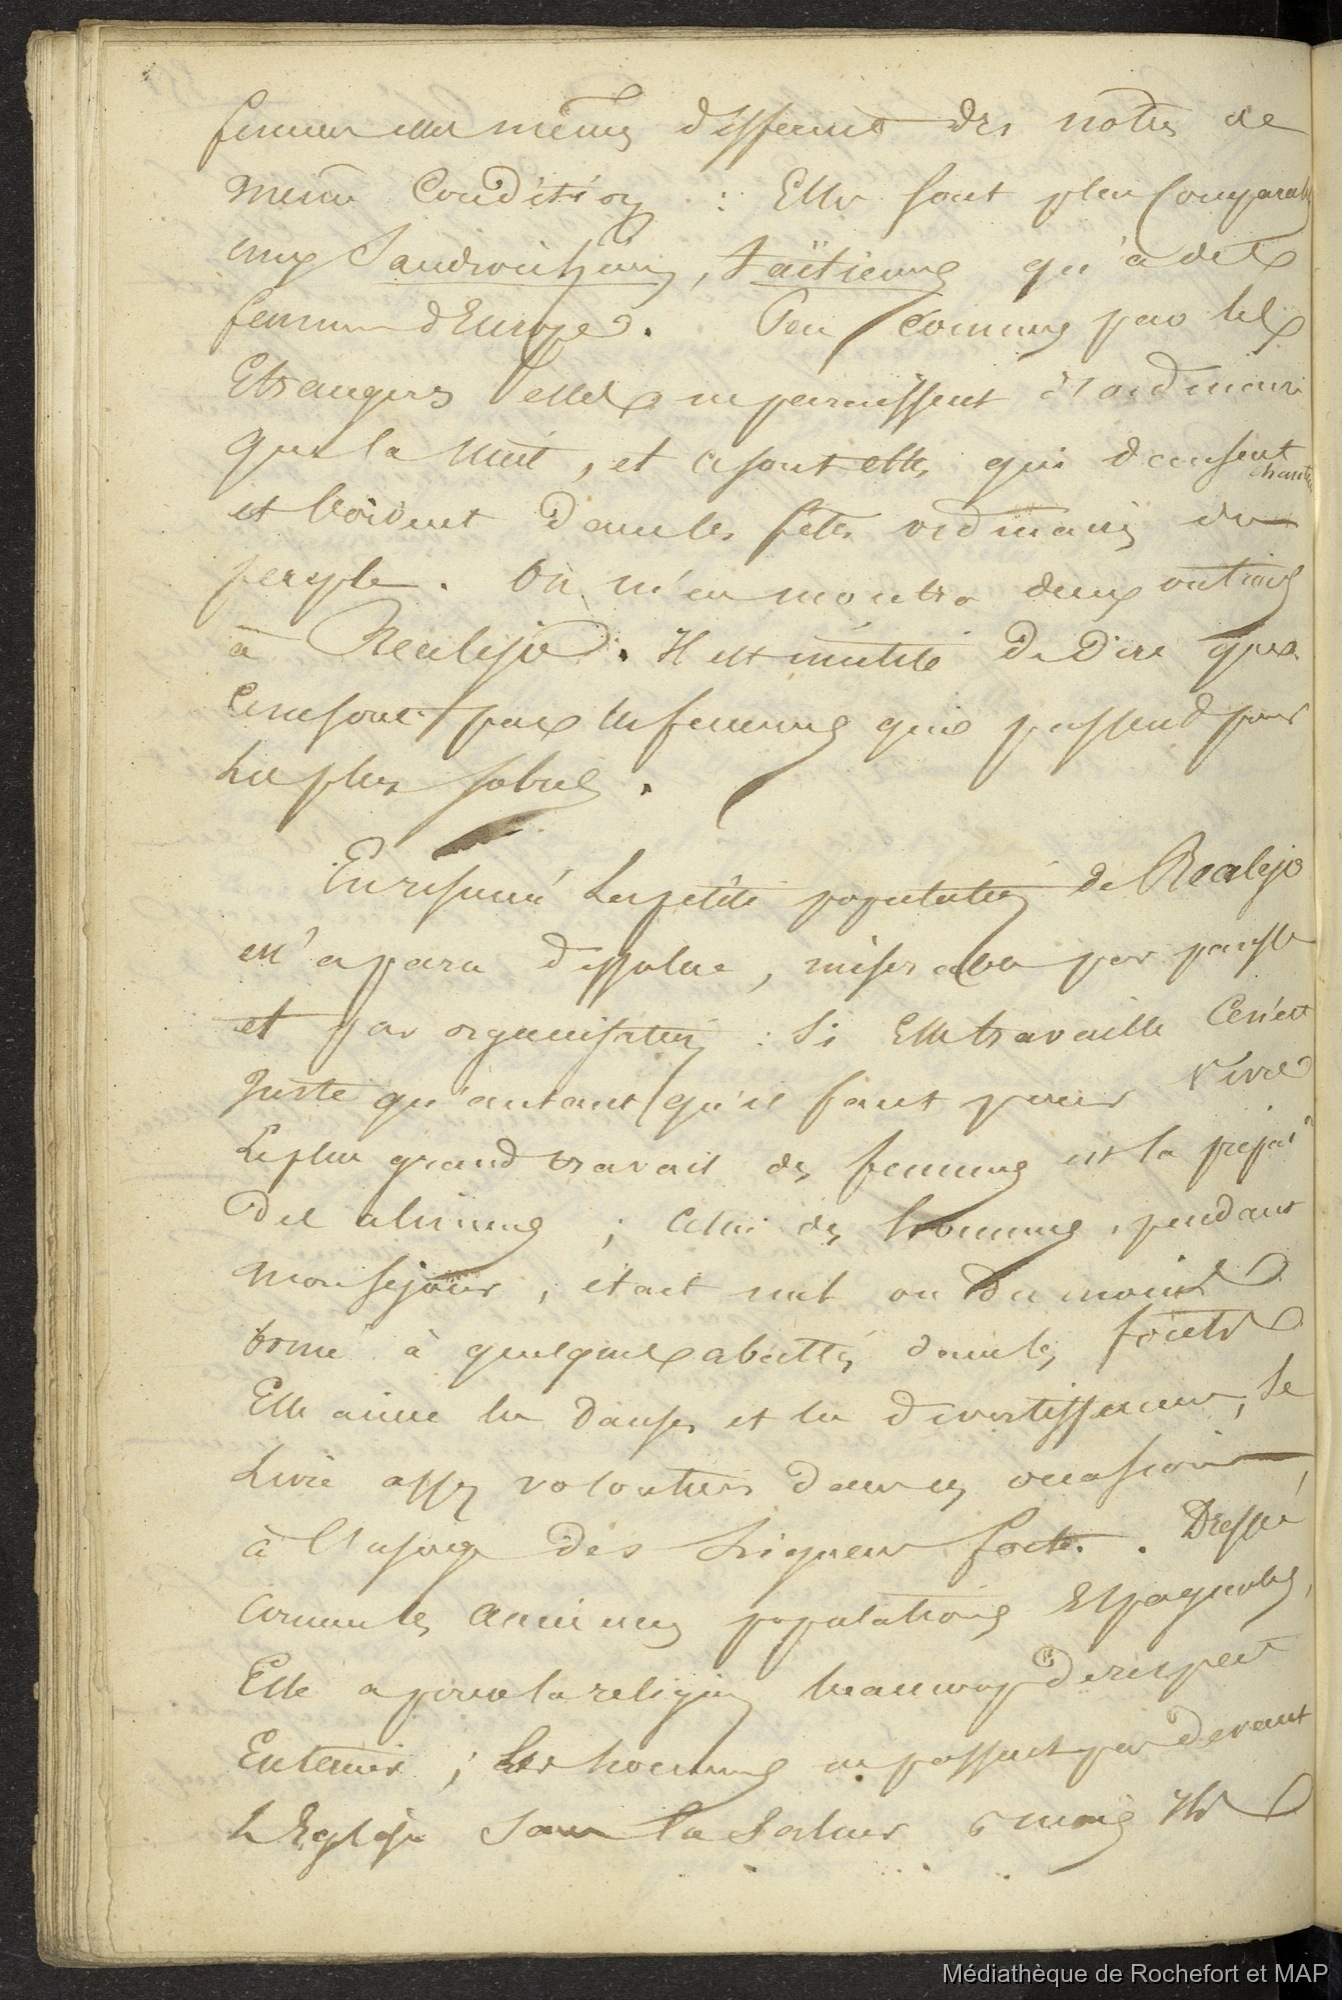 femmes elles mêmes diffèrent des notres de
même Condition : Elles sont plus Comparables
aux Sandwichiennes, Taïtiennes qu'à des
femmes d'Europe. Peu connues par les
Etrangers elles ne paraissent à l'ordinaire
que la nuit, et ce sont elles qui dansent
chantent
et boivent dans les fêtes ordinaires du
peuple. On m'en montra deux
à Realejo. Il est inutile de dire que
ce ne sont pas les femmes qui passent pour
les plus sobres.
En résumé la petite population de Realejo
m'a paru dissolue, misérable par paresse
et par organisation : Si Elle travaille Ce n'est
juste qu'autant qu'il faut pour vivre
Le plus grand travail des femmes est la prépar
des aliments ; Celui des hommes, pendant
mon séjour, était nul ou du moins
borné à quelques abattis dans les forêts
Elle aime les danses et les divertissements, se
livre assez volontiers dans ces occasions
à l'usage des Liqueurs fortes. Dressée
comme les anciennes populations Espagnoles,
Elle a pour la religion beaucoup de respect
Extérieur ; Les hommes ne passent pas devant
L'Eglise sans la saluer ils
Médiathèque de Rochefort et MAP